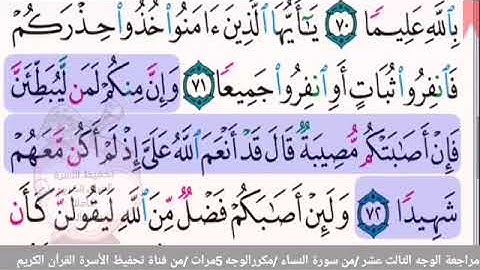 بِٱللَّهِ عَلِيمًا ٧٠ يَٰٓأَيُّهَا ٱلَّذِينَ ءَامَنُوا۟ خُذُوا۟ حِذْرَكُمْ
فَٱنفِرُوا۟ ثُبَاتٍ أَوِ ٱنفِرُوا۟ جَمِيعًا ٧١ وَإِنَّ مِنكُمْ لَمَن لَّيُبَطِّئَنَّ
فَإِنْ أَصَٰبَتْكُم مُّصِيبَةٌ قَالَ قَدْ أَنْعَمَ ٱللَّهُ عَلَىَّ إِذْ لَمْ أَكُن مَّعَهُمْ
شَهِيدًا ٧٢ وَلَئِنْ أَصَٰبَكُمْ فَضْلٌ مِّنَ ٱللَّهِ لَيَقُولَنَّ كَأَن
مراجعة الوجه الثالث عشر /من سورة النساء /مكررالوجه 5مرات /من قناة تحفيظ الأسرة القرآن الكريم